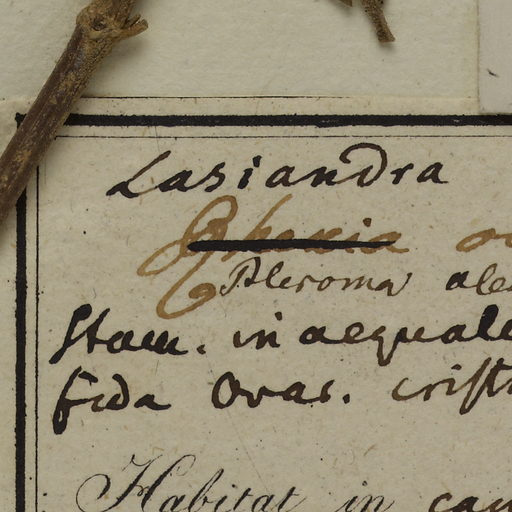 Lasiandra
Pleroma ale
Stam. in aequale
fida Ovar. crist
Habitat in cam